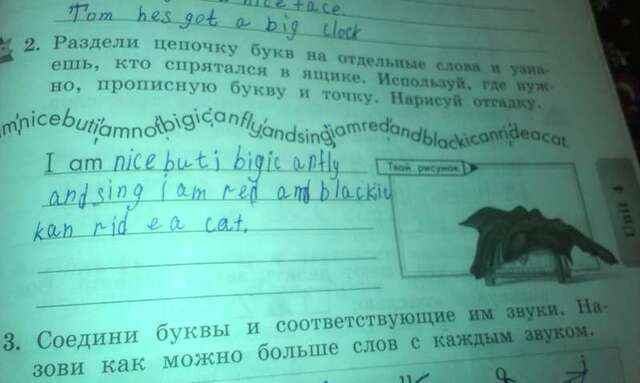 nice face
Tom hes got a big clock
2. Раздели цепочку букв на отдельные слова и узна-
ешь, кто спрятался в ящике. Используй, где нуж-
но, прописную букву и точку. Нарисуй отгадку.
m/nicebuti/amnotbigicanfly/andsing/iamred/andblackicanrideacat.
I am nice but i bigic anfly
and sing i am red and blackic
kan rid e a cat.
Твой рисунок
Unit 4
3. Соедини буквы и соответствующие им звуки. На-
зови как можно больше слов с каждым звуком.